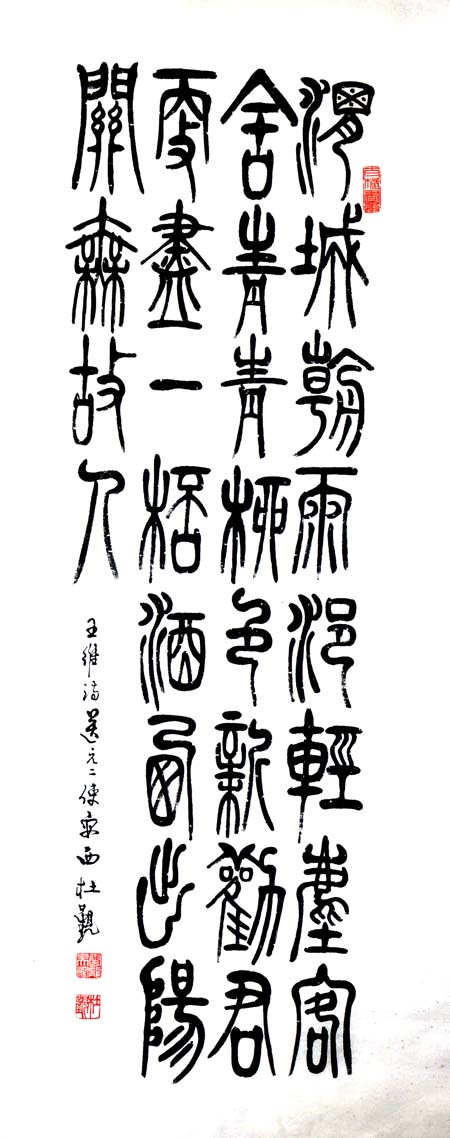 渭城朝雨浥輕塵客
舍青青柳色新勸君
更盡一桮酒西出陽
關無故人
王維詩送元二使安西杜